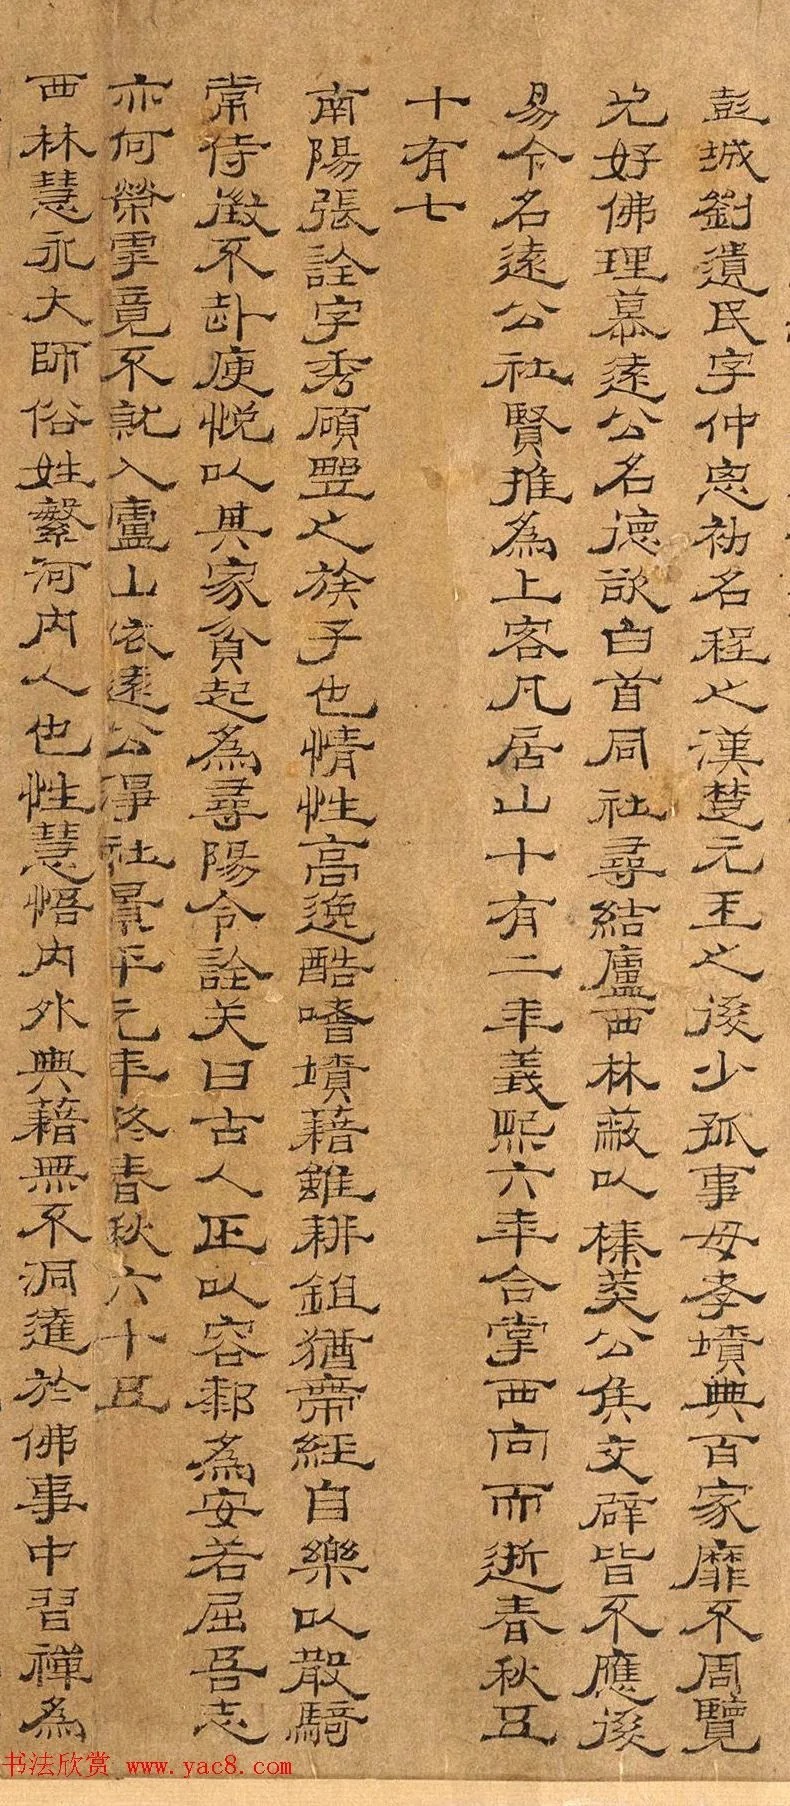 彭城劉遺民字仲思初名程之漢楚元王之後少孤事母孝墳典百家靡不周覽
尤好佛理慕遠公名德欲白首同社尋結廬西林蔽以榛莽公侯交辟皆不應後
易今名遠公社賢推為上客凡居山十有二年義熙六年合掌西向而逝春秋五
十有七
南陽張詮字秀碩野之族子也情性高逸酷嗜墳藉雖耕鉏猶帶經自樂以散騎
常侍徵不赴庾悅以其家貧起為尋陽令詮关曰古人正以容郄為安若屈吾志
亦何榮乎竟不就入廬山依遠公淨社景平元年終春秋六十五
西林慧永大師俗姓繁河內人也性慧悟內外典藉無不洞達於佛事中習禪為
书法欣赏 www.yac8.com